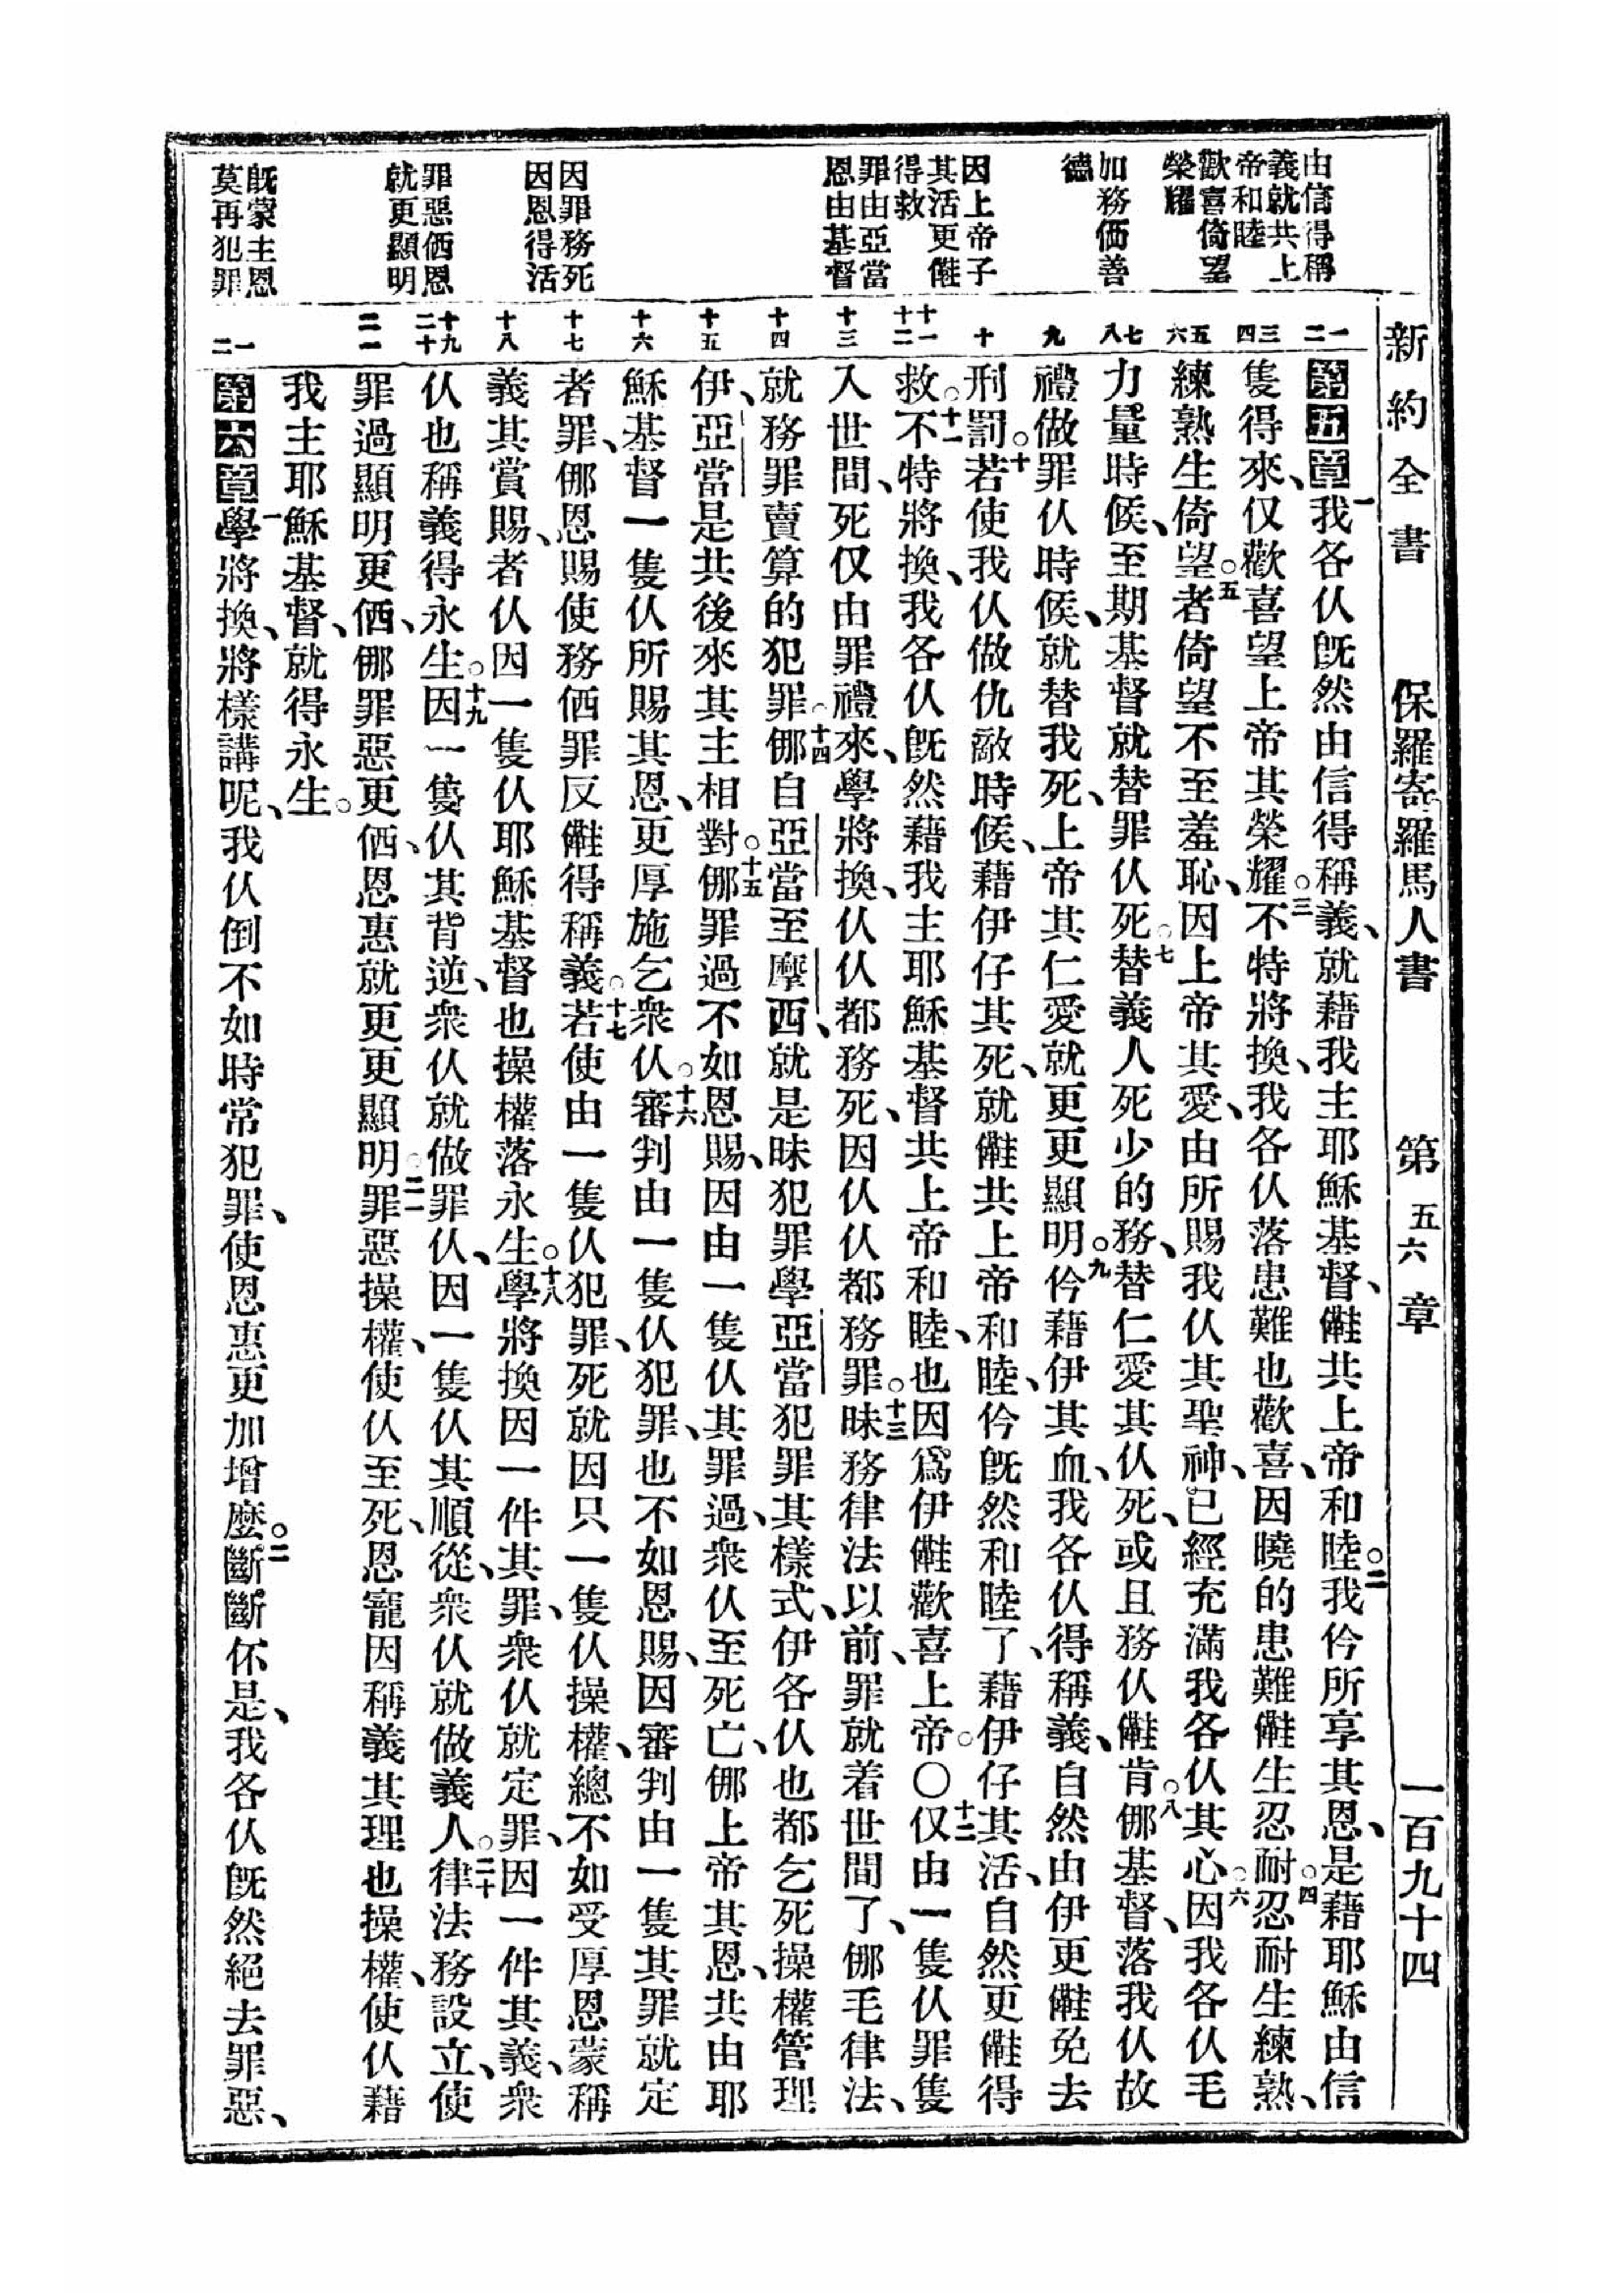 新約全書　保羅寄羅馬人書　第五六章　一百九十四
由信得稱
義就共上
帝和睦
歡喜倚望
榮耀
加務価善
德
因上帝子
其活更㑚
得救
罪由亞當
恩由基督
因罪務死
因恩得活
罪惡価恩
就更顯明
旣蒙主恩
莫再犯罪
一二
三四
五六
七八
九
十
十一十二
十三
十四
十五
十六
十七
十八
十九二十
二一
一二
第五章一我各仈旣然由信得稱義、就藉我主耶穌基督、㑚共上帝和睦。二我伶所享其恩、是藉耶穌由信
隻得來、仅歡喜望上帝其榮耀。三不特將換、我各仈落患難也歡喜、因曉的患難㑚生忍耐。四忍耐生練熟、
練熟生倚望。五者倚望不至羞恥、因上帝其愛、由所賜我仈其聖神、已經充滿我各仈其心。六因我各仈毛
力量時候、至期基督就替罪仈死。七替義人死少的務、替仁愛其仈死、或且務仈㑚肯。八倻基督、落我仈故
禮做罪仈時候、就替我死、上帝其仁愛就更更顯明。九伶藉伊其血、我各仈得稱義、自然由伊更㑚免去
刑罰。十若使我仈做仇敵時候、藉伊仔其死、就㑚共上帝和睦、伶旣然和睦了、藉伊仔其活、自然更㑚得
救。十一不特將換、我各仈旣然藉我主耶穌基督共上帝和睦、也因爲伊㑚歡喜上帝。○十二仅由一隻仈罪隻
入世間、死仅由罪禮來、學將換、仈仈都務死、因仈仈都務罪。十三昧務律法以前、罪就着世間了、倻毛律法、
就務罪賣算的犯罪。十四倻自亞當至摩西、就是昧犯罪學亞當犯罪其樣式、伊各仈也都乞死操權管理
伊、亞當是共後來其主相對。十五倻罪過不如恩賜、因由一隻仈其罪過、衆仈至死亡、倻上帝其恩、共由耶
穌基督一隻仈所賜其恩、更厚施乞衆仈。十六審判由一隻仈犯罪、也不如恩賜、因審判由一隻其罪就定
者罪、倻恩賜使務価罪反㑚得稱義。十七若使由一隻仈犯罪、死就因只一隻仈操權、總不如受厚恩蒙稱
義其賞賜、者仈因一隻仈耶穌基督也操權落永生。十八學將換因一件其罪、衆仈就定罪、因一件其義、衆
仈也稱義得永生。十九因一隻仈其背逆、衆仈就做罪仈、因一隻仈其順從、衆仈就做義人。二十律法務設立、使
罪過顯明更価、倻罪惡更価、恩惠就更更顯明。二一罪惡操權、使仈至死、恩寵因稱義其理也操權、使仈藉
我主耶穌基督、就得永生。
第六章一學將換、將樣講呢、我仈倒不如時常犯罪、使恩惠更加增麽。二斷斷伓是、我各仈旣然絕去罪惡、